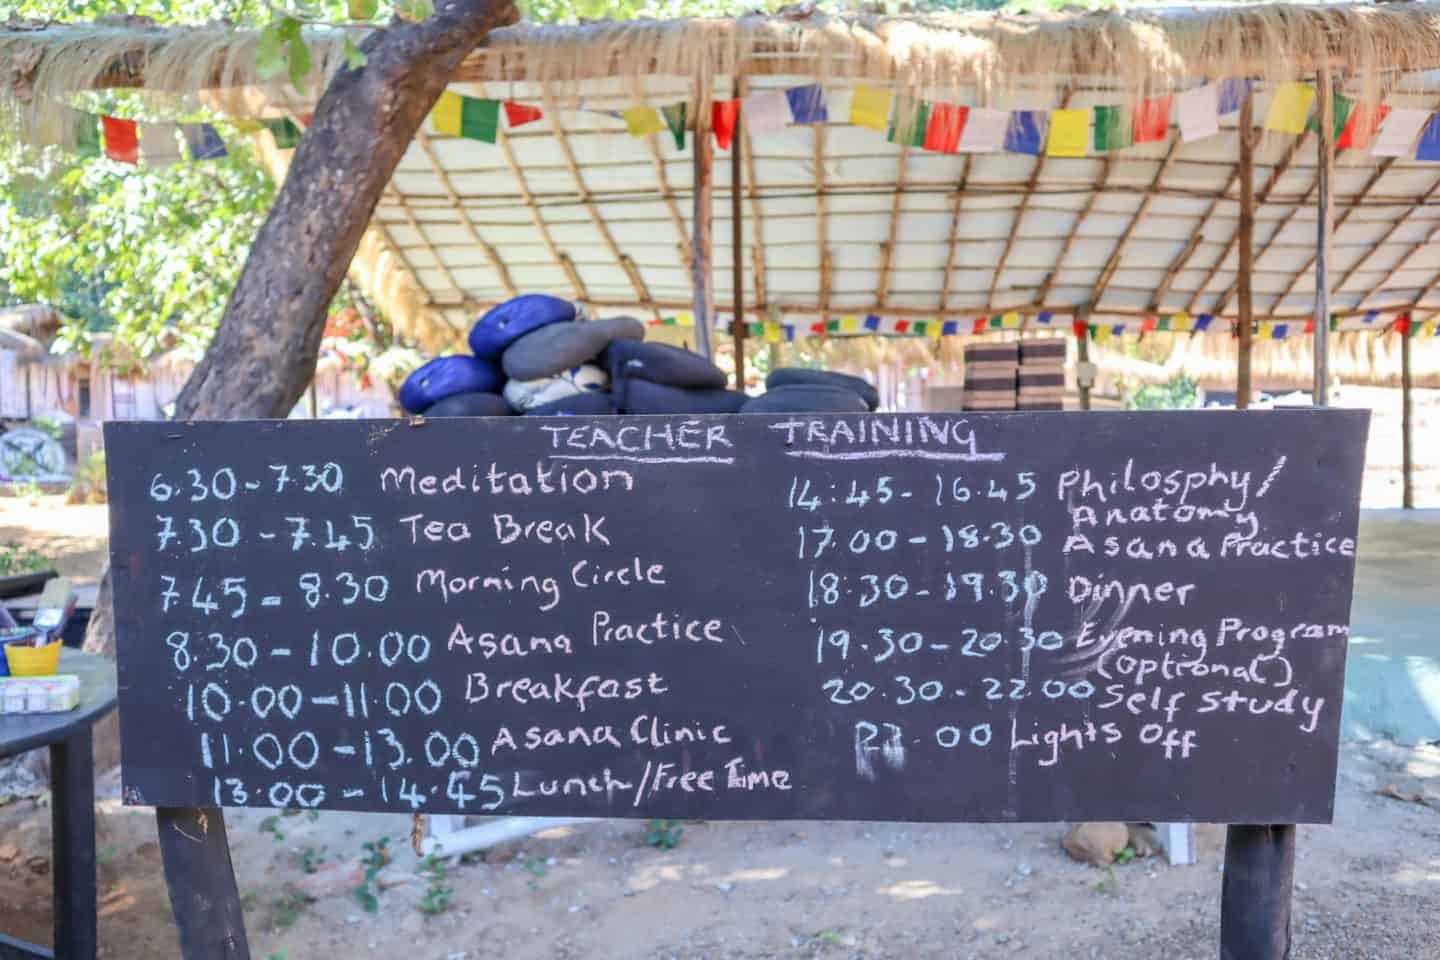 TEACHER TRAINING
6.30-7.30 Meditation
7.30-7.45 Tea Break
7.45-8.30 Morning Circle
8.30-10.00 Asana Practice
10.00-11.00 Breakfast
11.00-13.00 Asana Clinic
13.00-14.45 Lunch/Free Time
14:45-16.45 Philosphy/
Anatomy
17.00-18.30 Asana Practice
18.30-19.30 Dinner
19.30-20.30 Evening Program
(optional)
20.30-22.00 Self Study
22.00 Lights Off